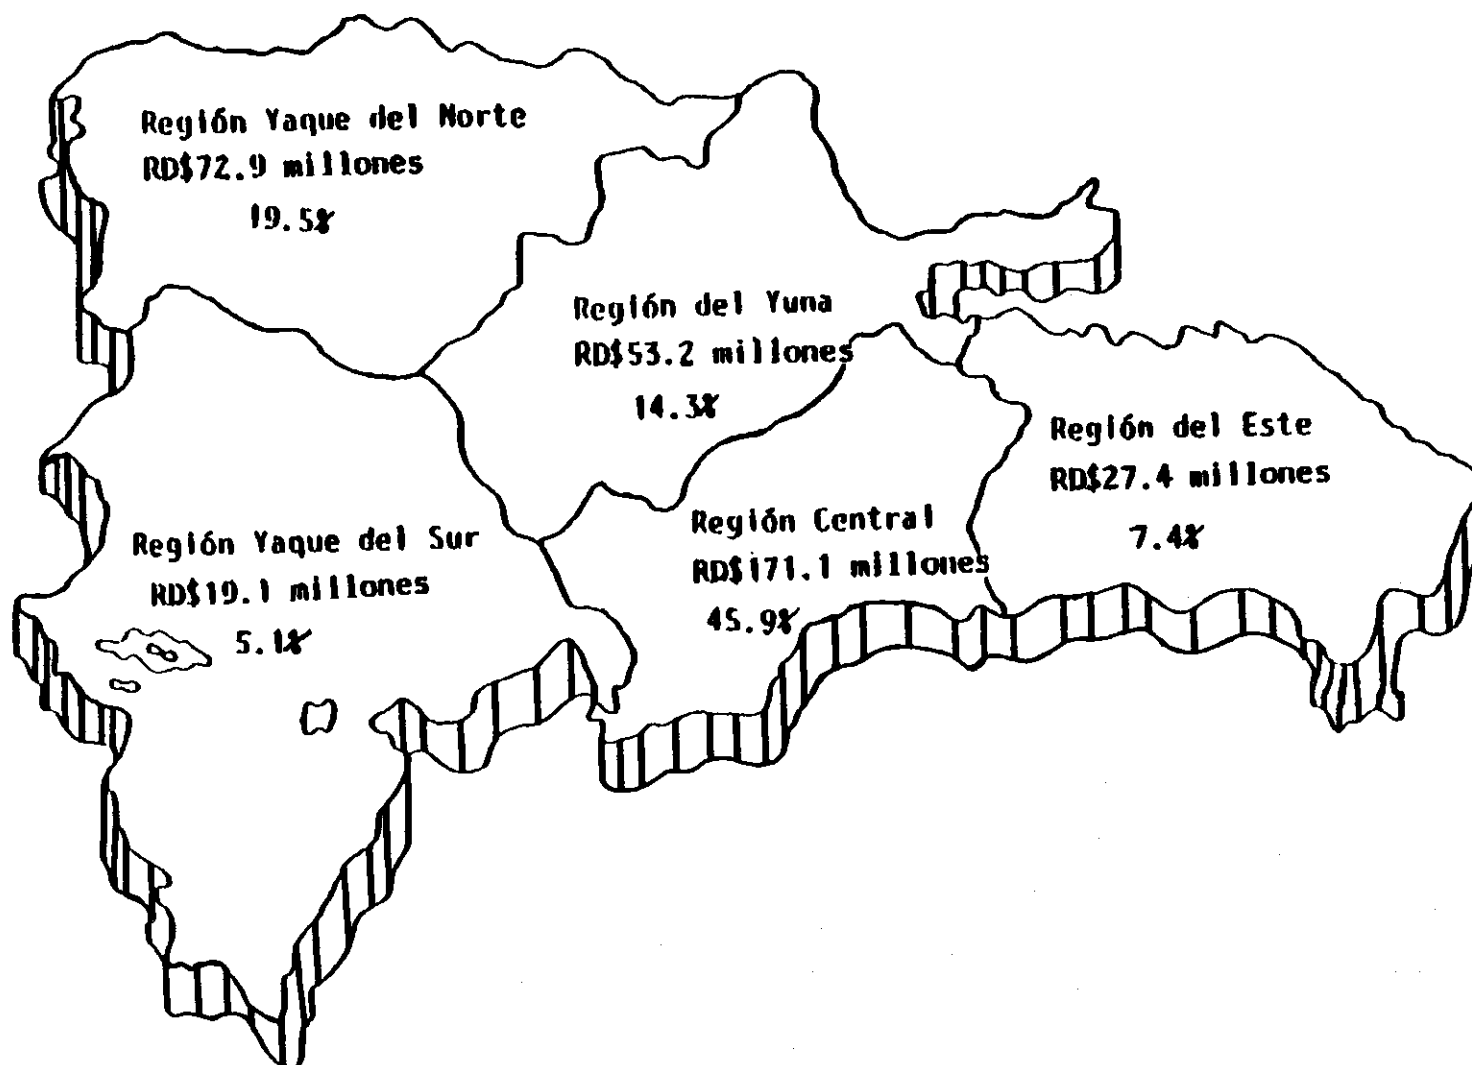 Región Yaque del Norte
RD$72.9 millones
19.5%
Región del Yuna
RD$53.2 millones
14.3%
Región del Este
RD$27.4 millones
7.4%
Región Central
RD$171.1 millones
45.9%
Región Yaque del Sur
RD$19.1 millones
5.1%